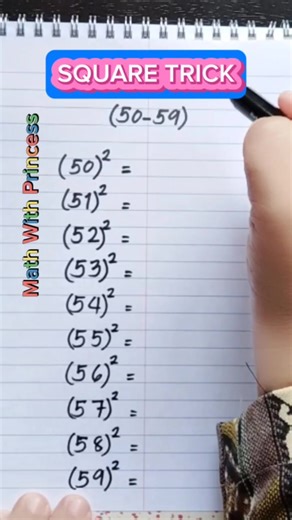 SQUARE TRICK
(50-59)
Math With Princess
(50)² =
(51)² =
(52)² =
(53)² =
(54)² =
(55)² =
(56)² =
(57)² =
(58)² =
(59)² =